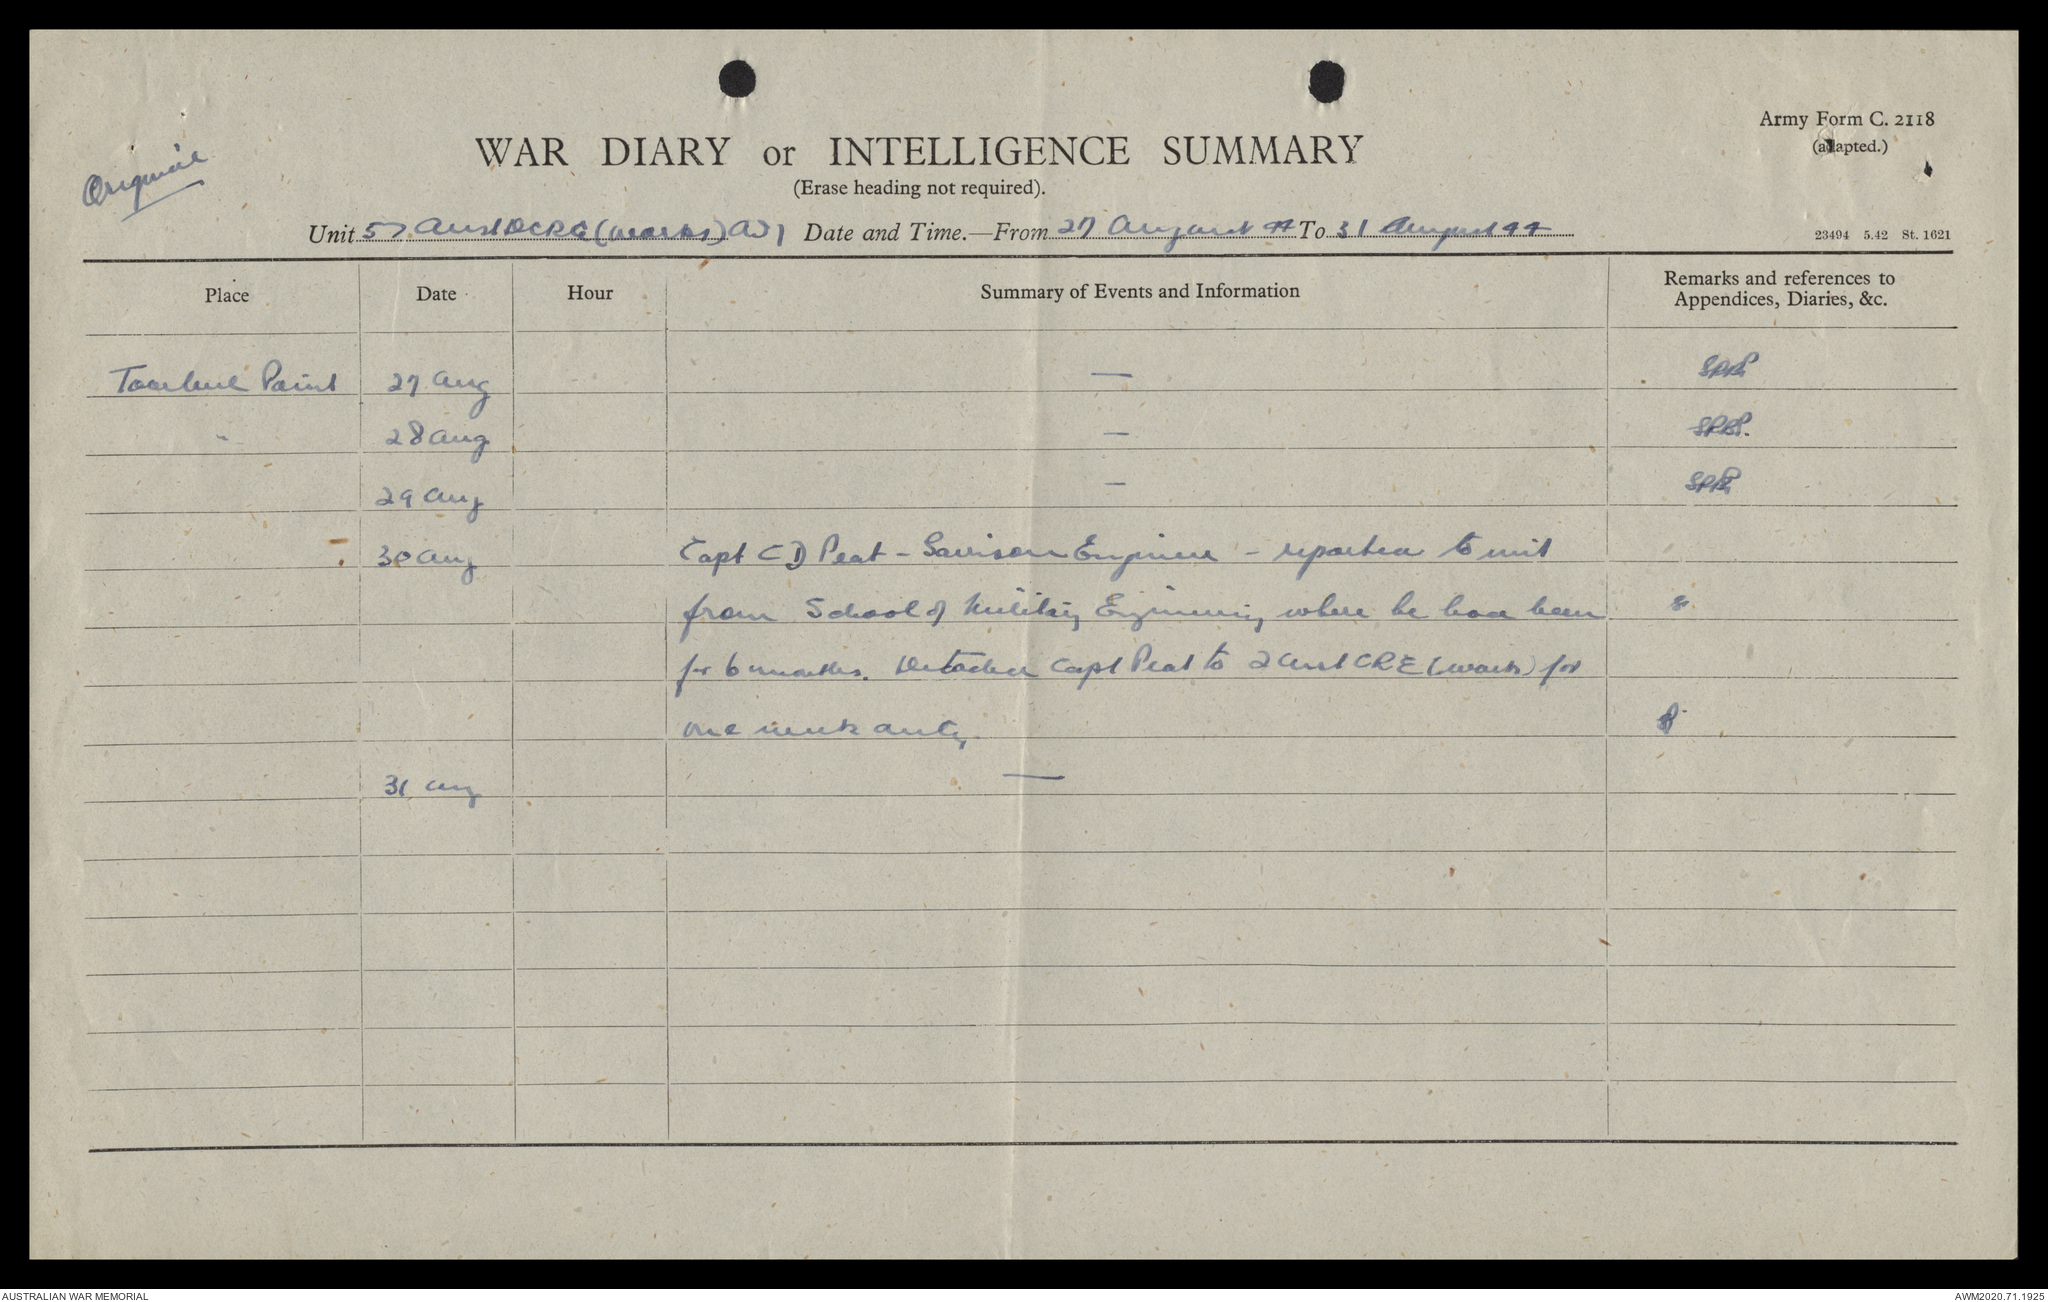 Original
Army Form C. 2118
(adapted.)
WAR DIARY or INTELLIGENCE SUMMARY
(Erase heading not required).
Unit 57 Aust DCRE (Works) AIF Date and Time.—From 27 August 44 To 31 August 44
23494 5.42 St. 1621
Place Date Hour Summary of Events and Information Remarks and references to
Appendices, Diaries, &c.
Toorbul Point 27 Aug —
" 28 Aug —
29 Aug —
30 Aug Capt CD Peat - Garrison Engineer - reported to unit
from School of Military Engineering where he had been
for 6 months. Detached Capt Peat to 2 Aust CRE (Works) for
one weeks duty.
31 Aug —
AUSTRALIAN WAR MEMORIAL
AWM2020.71.1925